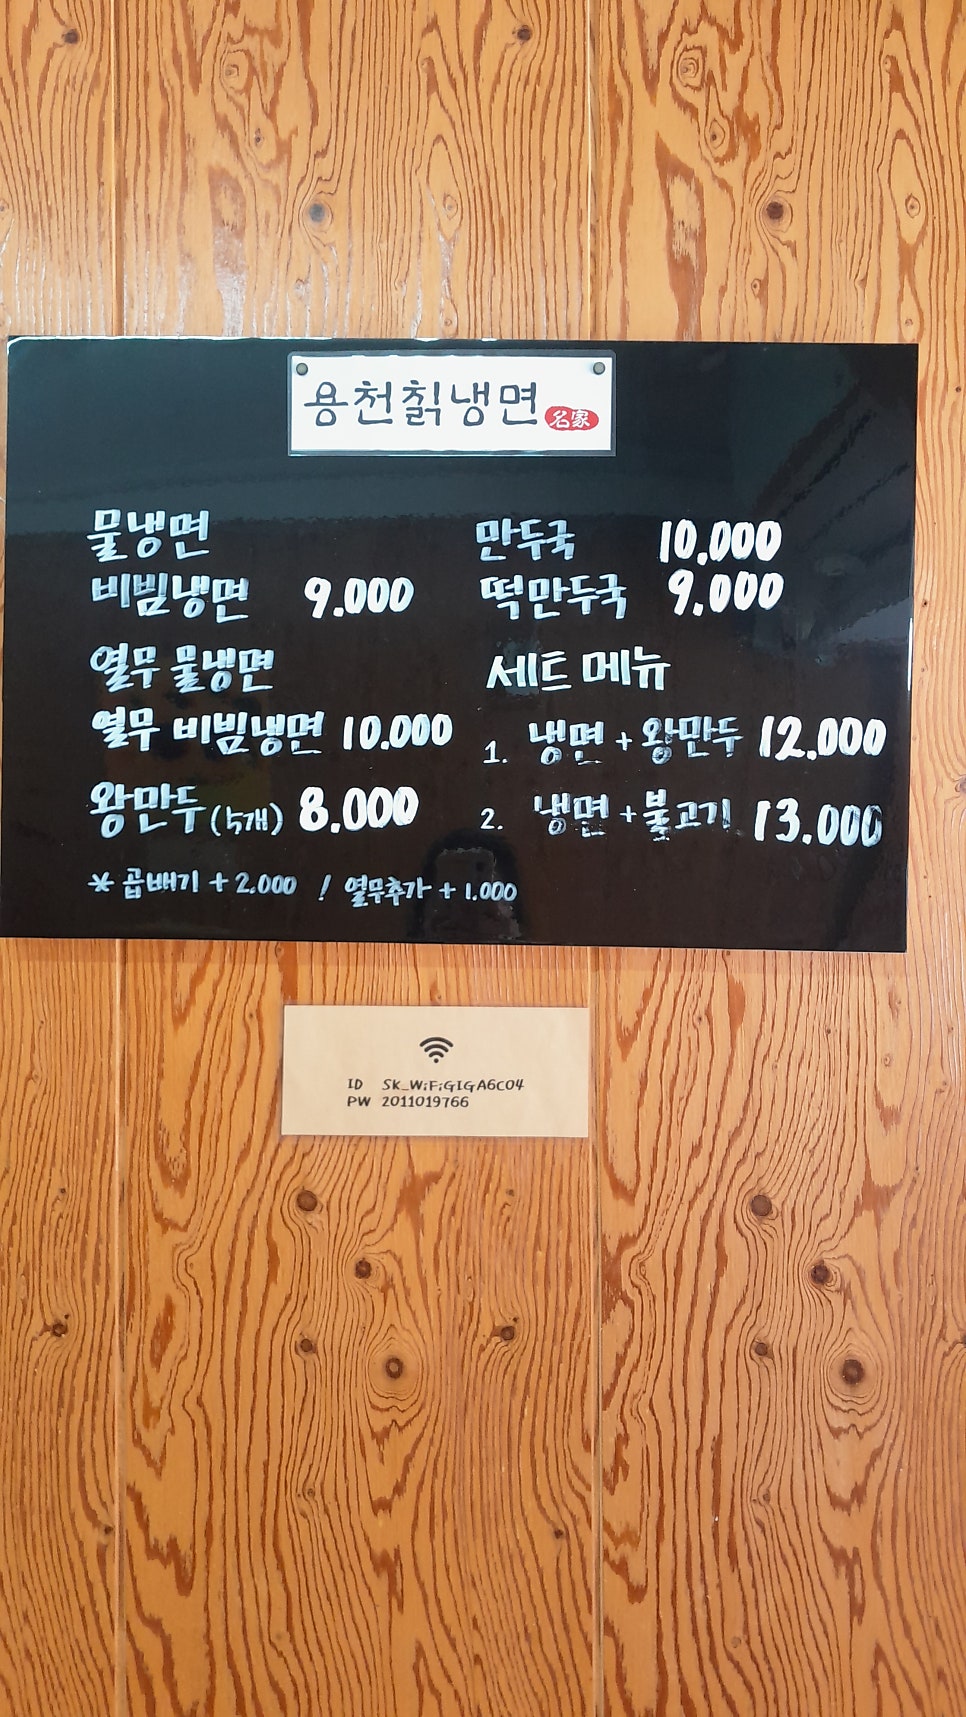 용천칡냉면 名家
물냉면
비빔냉면 9.000
열무 물냉면
열무 비빔냉면 10.000
왕만두 (5개) 8.000
만두국 10.000
떡만두국 9.000
세트 메뉴
1. 냉면 + 왕만두 12.000
2. 냉면 + 불고기 13.000
* 곱배기 + 2.000 / 열무추가 + 1.000
ID SK_WiFiGIGA6C04
PW 2011019766